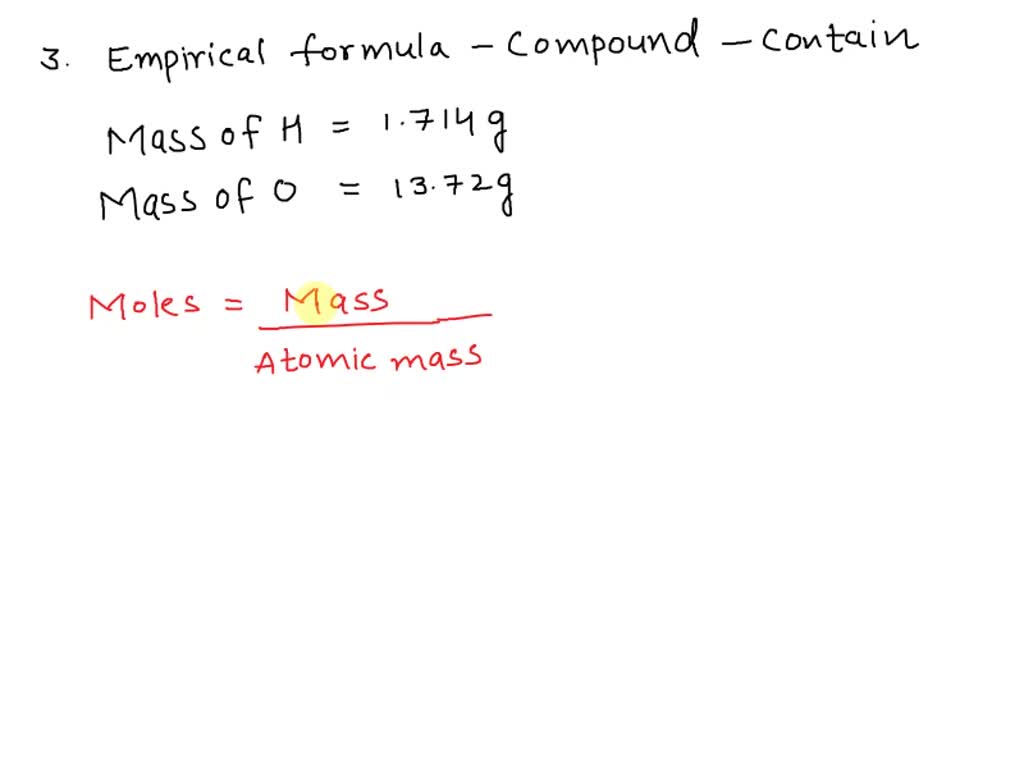 3. Empirical formula - Compound - contain
Mass of H = 1.714g
Mass of O = 13.72g
Moles = Mass
Atomic mass